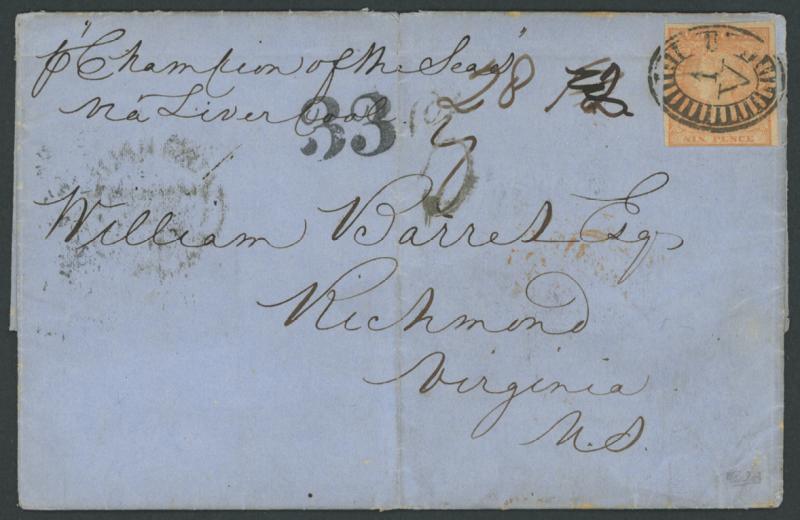 p "Champion of the Seas"
via Liverpool
33
28
SIX PENCE
1
V
William Barret Esq
Richmond
Virginia
U.S.